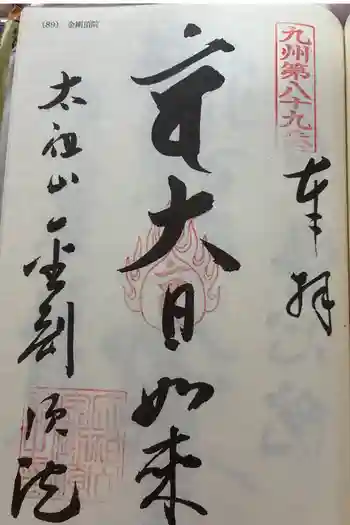 (89) 金剛頂院
九州第八十九
奉拝
大日如来
太祖山 金剛
頂院